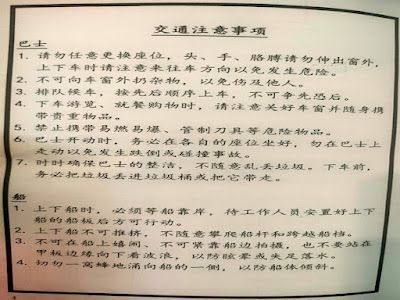 交通注意事项
巴士
1. 请勿任意更换座位，头、手、胳膊请勿伸出窗外，
上下车时请注意来往车方向以免发生危险。
2. 不可向车窗外扔杂物，以免伤及他人。
3. 排队候车，按先后顺序上车，不可争先恐后。
4. 下车游览、就餐购物时，请注意关好车窗并随身携
带贵重物品。
5. 禁止携带易燃易爆、管制刀具等危险物品。
6. 巴士开动时，务必在各自的座位坐好，勿在巴士上
走动以免发生跌倒或碰撞事故。
7. 时时确保巴士的整洁，不随意乱丢垃圾。下车前，
务必把垃圾丢进垃圾桶或把它带走。
船
1. 上下船时，必须等船靠岸，待工作人员安置好上下
船的船板后方可行动。
2. 上下船不可推挤，不可随意攀爬船杆和跨越船档。
3. 不可在船上嬉闹、不可紧靠船边拍摄，也不要站在
甲板边缘向下看波浪，以防眩晕或失足落水。
4. 切勿一窝蜂地涌向船的一侧，以防船体倾斜。